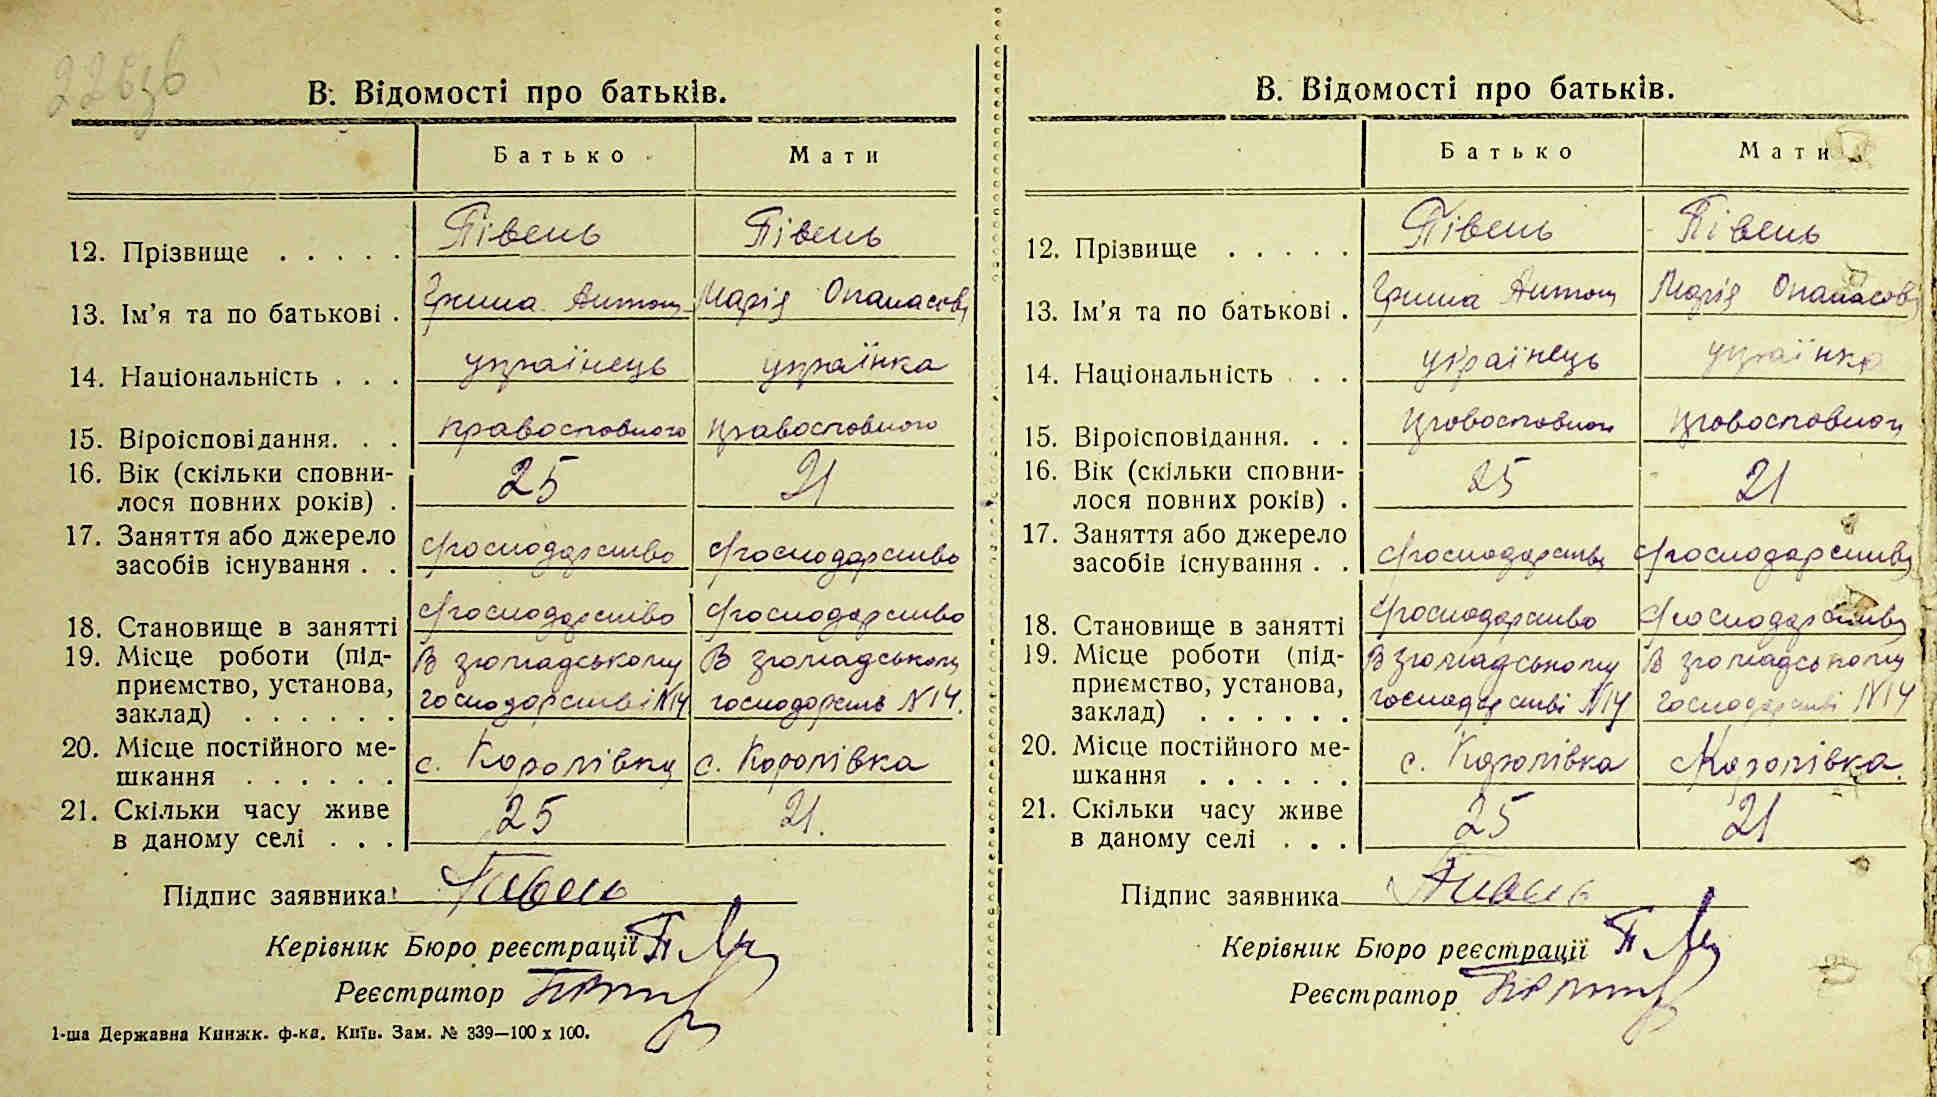 В. Відомості про батьків.
Батько Мати
12. Прізвище . . . . . Півень Півень
13. Ім'я та по батькові . Гриша Антон Марія Опанасов
14. Національність . . . українець українка
15. Віроісповідання. . . православного православного
16. Вік (скільки сповни-
лося повних років) . 25 21
17. Заняття або джерело
засобів існування . . с/господарство с/господарство
18. Становище в занятті с/господарство с/господарство
19. Місце роботи (під- В громадському В громадському
приємство, установа, господарстві №14 господарств №14.
заклад) . . . . . .
20. Місце постійного ме- с. Королівка с. Королівка
шкання . . . . . .
21. Скільки часу живе
в даному селі . . . 25 21.
Підпис заявника Півень
Керівник Бюро реєстрації
Реєстратор
1-ша Державна Книжк. ф-ка. Київ. Зам. № 339—100 х 100.
В. Відомості про батьків.
Батько Мати
12. Прізвище . . . . . Півень Півень
13. Ім'я та по батькові . Гриша Антон Марія Опанасов
14. Національність . . . українець українка
15. Віроісповідання. . . православного православного
16. Вік (скільки сповни-
лося повних років) . 25 21
17. Заняття або джерело
засобів існування . . с/господарство с/господарство
18. Становище в занятті с/господарство с/господарство
19. Місце роботи (під- В громадському В громадському
приємство, установа, господарстві №14 господарстві №14
заклад) . . . . . .
20. Місце постійного ме- с. Королівка с. Королівка.
шкання . . . . . .
21. Скільки часу живе
в даному селі . . . 25 21
Підпис заявника Півень
Керівник Бюро реєстрації
Реєстратор